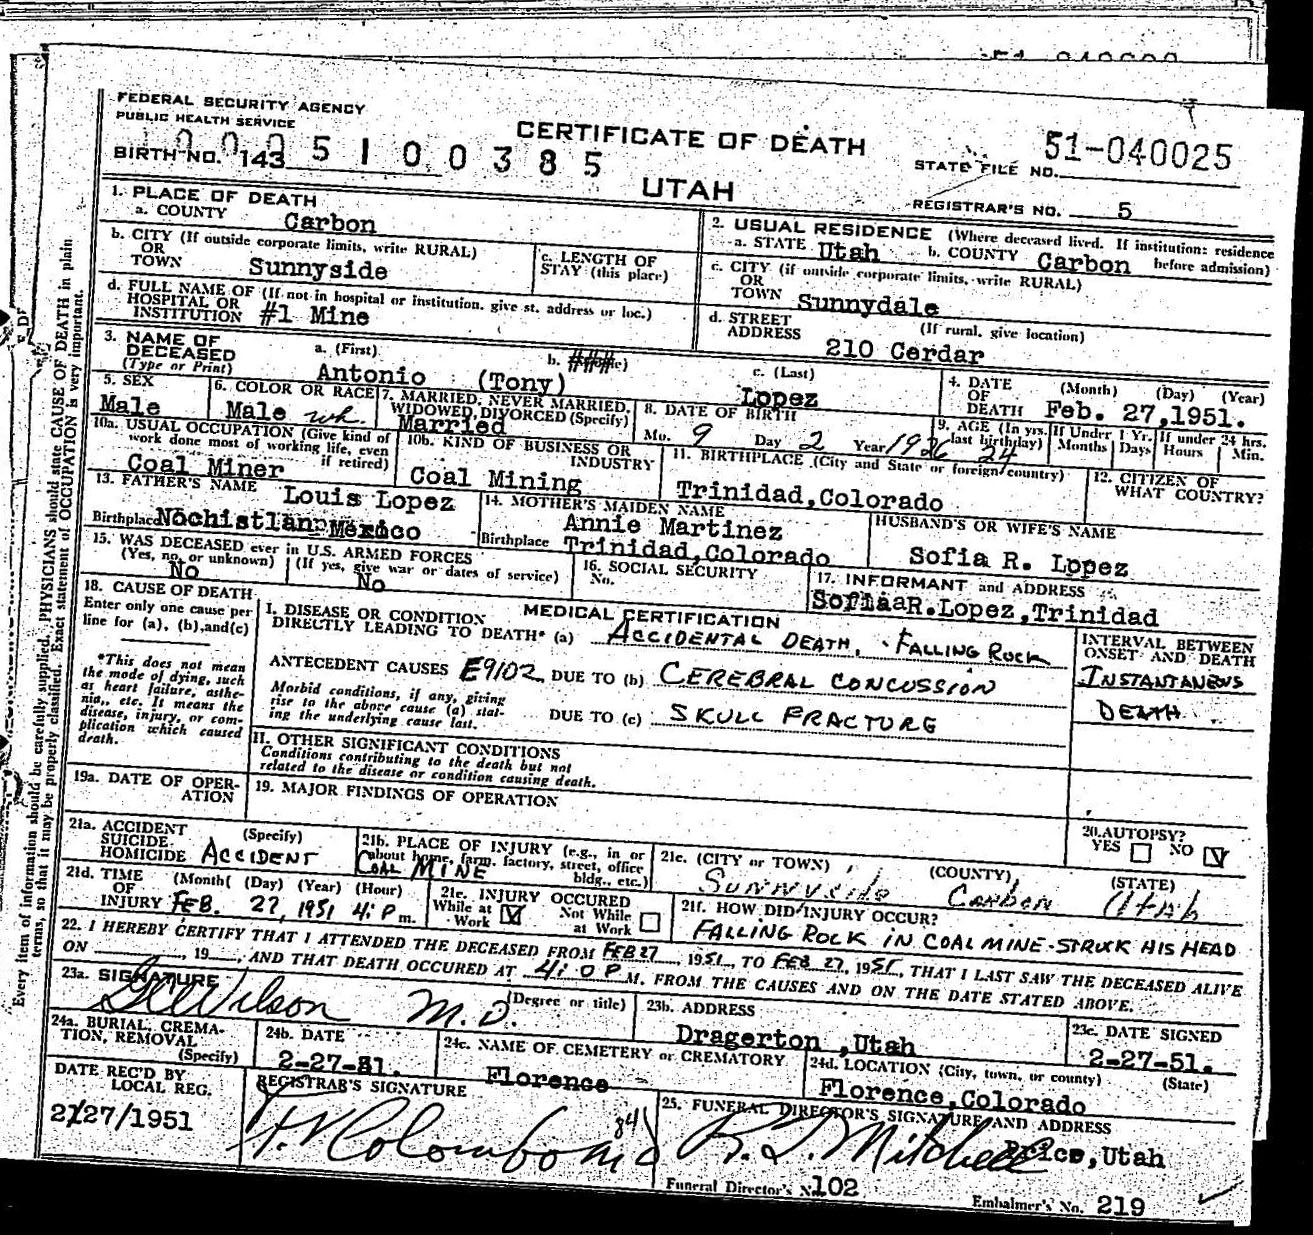 FEDERAL SECURITY AGENCY
PUBLIC HEALTH SERVICE
CERTIFICATE OF DEATH
UTAH
BIRTH NO. 143
5 1 0 0 3 8 5
STATE FILE NO. 51-040025
REGISTRAR'S NO. 5
1. PLACE OF DEATH
a. COUNTY Carbon
b. CITY (If outside corporate limits, write RURAL)
OR
TOWN Sunnyside
c. LENGTH OF
STAY (this place)
d. FULL NAME OF (If not in hospital or institution, give st. address or loc.)
HOSPITAL OR
INSTITUTION #1 Mine
2. USUAL RESIDENCE (Where deceased lived. If institution: residence
before admission)
a. STATE Utah b. COUNTY Carbon
c. CITY (if outside corporate limits, write RURAL)
OR
TOWN Sunnydale
d. STREET (If rural, give location)
ADDRESS 210 Cerdar
3. NAME OF
DECEASED
(Type or Print)
a. (First) Antonio
b. (Tony)
c. (Last) Lopez
4. DATE (Month) (Day) (Year)
OF
DEATH Feb. 27,1951.
5. SEX
Male
6. COLOR OR RACE
Male wh.
7. MARRIED, NEVER MARRIED,
WIDOWED, DIVORCED (Specify)
Married
8. DATE OF BIRTH
Mo. 9 Day 2 Year 1926
9. AGE (In yrs. last birthday) 24
If Under 1 Yr. Months Days
If under 24 hrs. Hours Min.
10a. USUAL OCCUPATION (Give kind of
work done most of working life, even
if retired)
Coal Miner
10b. KIND OF BUSINESS OR
INDUSTRY
Coal Mining
11. BIRTHPLACE (City and State or foreign country)
Trinidad,Colorado
12. CITIZEN OF
WHAT COUNTRY?
13. FATHER'S NAME Louis Lopez
Birthplace Nochistlan Mexico
14. MOTHER'S MAIDEN NAME
Annie Martinez
Birthplace Trinidad,Colorado
HUSBAND'S OR WIFE'S NAME
Sofia R. Lopez
15. WAS DECEASED ever in U.S. ARMED FORCES
(Yes, no, or unknown) No
(If yes, give war or dates of service) No
16. SOCIAL SECURITY
No.
17. INFORMANT and ADDRESS
R.Lopez,Trinidad
18. CAUSE OF DEATH
Enter only one cause per
line for (a), (b),and(c)
*This does not mean
the mode of dying, such
as heart failure, asthe-
nia,, etc. It means the
disease, injury, or com-
plication which caused
death.
MEDICAL CERTIFICATION
I. DISEASE OR CONDITION
DIRECTLY LEADING TO DEATH* (a) ACCIDENTAL DEATH, FALLING ROCK
ANTECEDENT CAUSES E9102 DUE TO (b) CEREBRAL CONCUSSION
Morbid conditions, if any, giving
rise to the above cause (a) stat-
ing the underlying cause last.
DUE TO (c) SKULL FRACTURE
INTERVAL BETWEEN
ONSET AND DEATH
INSTANTANEUS
DEATH
II. OTHER SIGNIFICANT CONDITIONS
Conditions contributing to the death but not
related to the disease or condition causing death.
19a. DATE OF OPER-
ATION
19. MAJOR FINDINGS OF OPERATION
20.AUTOPSY?
YES NO
21a. ACCIDENT (Specify)
SUICIDE
HOMICIDE ACCIDENT
21b. PLACE OF INJURY (e.g., in or
about home, farm, factory, street, office
bldg., etc.)
COAL MINE
21c. (CITY or TOWN) (COUNTY) (STATE)
Sunnyside Carbon Utah
21d. TIME (Month( (Day) (Year) (Hour)
OF
INJURY FEB. 27, 1951 4: P m.
21e. INJURY OCCURED
While at Work Not While at Work
21f. HOW DID INJURY OCCUR?
FALLING ROCK IN COAL MINE-STRUCK HIS HEAD
22. I HEREBY CERTIFY THAT I ATTENDED THE DECEASED FROM FEB 27, 1951, TO FEB 27, 1951, THAT I LAST SAW THE DECEASED ALIVE
ON , 19 , AND THAT DEATH OCCURED AT 4:0 P M. FROM THE CAUSES AND ON THE DATE STATED ABOVE.
23a. SIGNATURE (Degree or title)
Wilson M.D.
23b. ADDRESS
Dragerton ,Utah
23c. DATE SIGNED
2-27-51.
24a. BURIAL, CREMA-
TION, REMOVAL
(Specify)
24b. DATE
2-27-51.
24c. NAME OF CEMETERY or CREMATORY
Florence
24d. LOCATION (City, town, or county) (State)
Florence,Colorado
DATE REC'D BY
LOCAL REG.
2/27/1951
REGISTRAR'S SIGNATURE
84
25. FUNERAL DIRECTOR'S SIGNATURE AND ADDRESS
Mitchell Price,Utah
Funeral Director's No. 102
Embalmer's No. 219
Every item of information should be carefully supplied. PHYSICIANS should state CAUSE OF DEATH in plain
terms, so that it may be properly classified. Exact statement of OCCUPATION is very important.